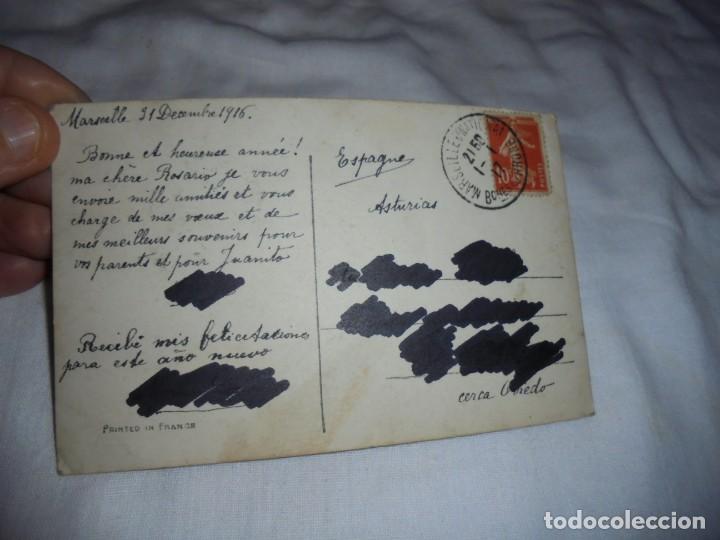 Marseille 31 Decembre 1916.
Bonne et heureuse année !
ma chère Rosario je vous
envoie mille amitiés et vous
charge de mes vœux et de
mes meilleurs souvenirs pour
vos parents et pour Juanito
Recibe mis felicitaciones
para este año nuevo
PRINTED IN FRANCE
Espagne
Asturias
cerca Oviedo
MARSEILLE
21 50
1 - 1
17
POSTES
todocoleccion
todocoleccion.net